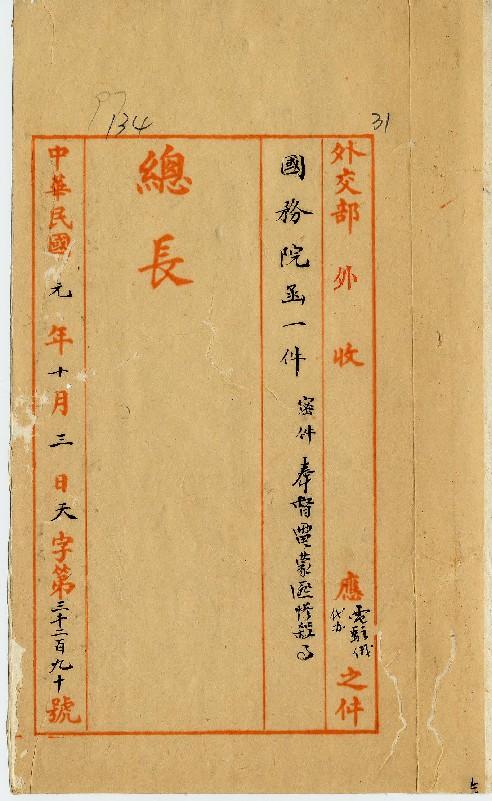 134
31
外交部外收
應電駐俄代办之件
國務院函一件 密件 奉督電蒙匪慘殺
總長
中華民國元年十月三日天字第三千二百九十號